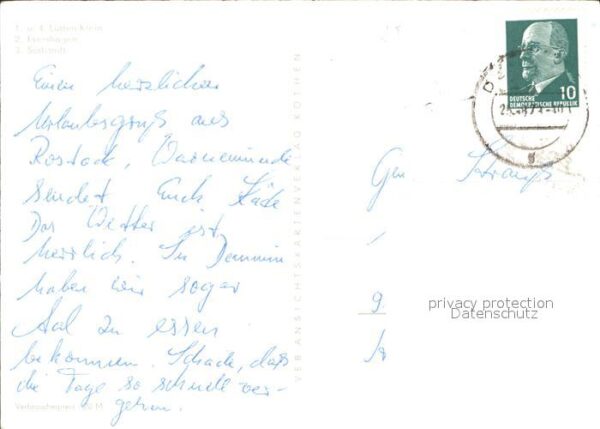 1. u. 4. Lütten Klein
2. Evershagen
3. Südstadt
Einen herzlichen
Urlaubsgruß aus
Rostock, Warnemünde
sendet Euch Käte
Das Wetter ist
herrlich. In Demmin
haben wir sogar
Aal zu essen
bekommen. Schade, daß
die Tage so schnell ver-
gehen.
Verbraucherpreis M
VEB ANSICHTSKARTENVERLAG KÖTHEN
10
DEUTSCHE
DEMOKRATISCHE REPUBLIK
9
privacy protection
Datenschutz